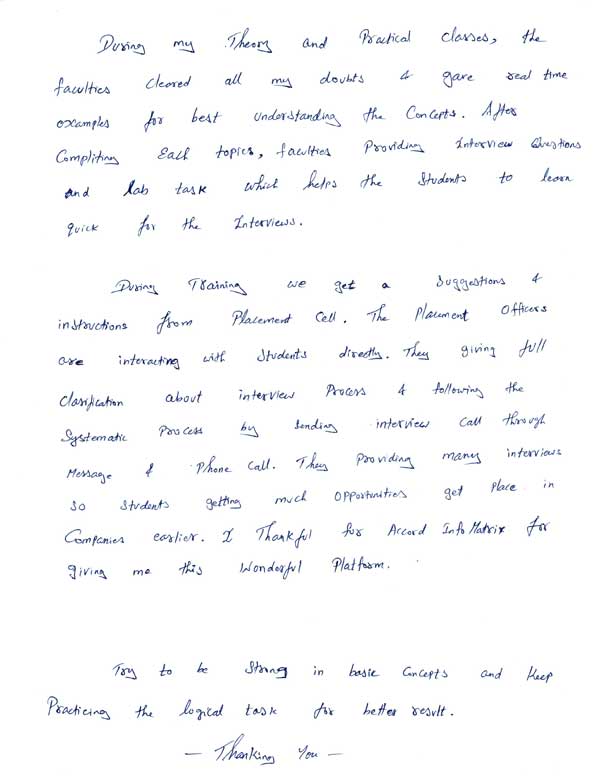 During my Theory and Practical classes, the
faculties cleared all my doubts & gave real time
examples for best understanding the Concepts. After
Compliting Each topics, faculties Providing Interview Questions
and lab task which helps the Students to learn
quick for the Interviews.
During Training we get a Suggestions &
instructions from Placement Cell. The Placement Officers
are interacting with Students directly. They giving full
Clarification about interview Process & following the
Systematic Process by Sending interview Call through
Message & Phone Call. They Providing many interviews
so students getting much Opportunities get Place in
Companies earlier. I Thankful for Accord InfoMatrix for
giving me this Wonderful Platform.
Try to be Strong in basic Concepts and Keep
Practicing the logical task for better result.
— Thanking You —